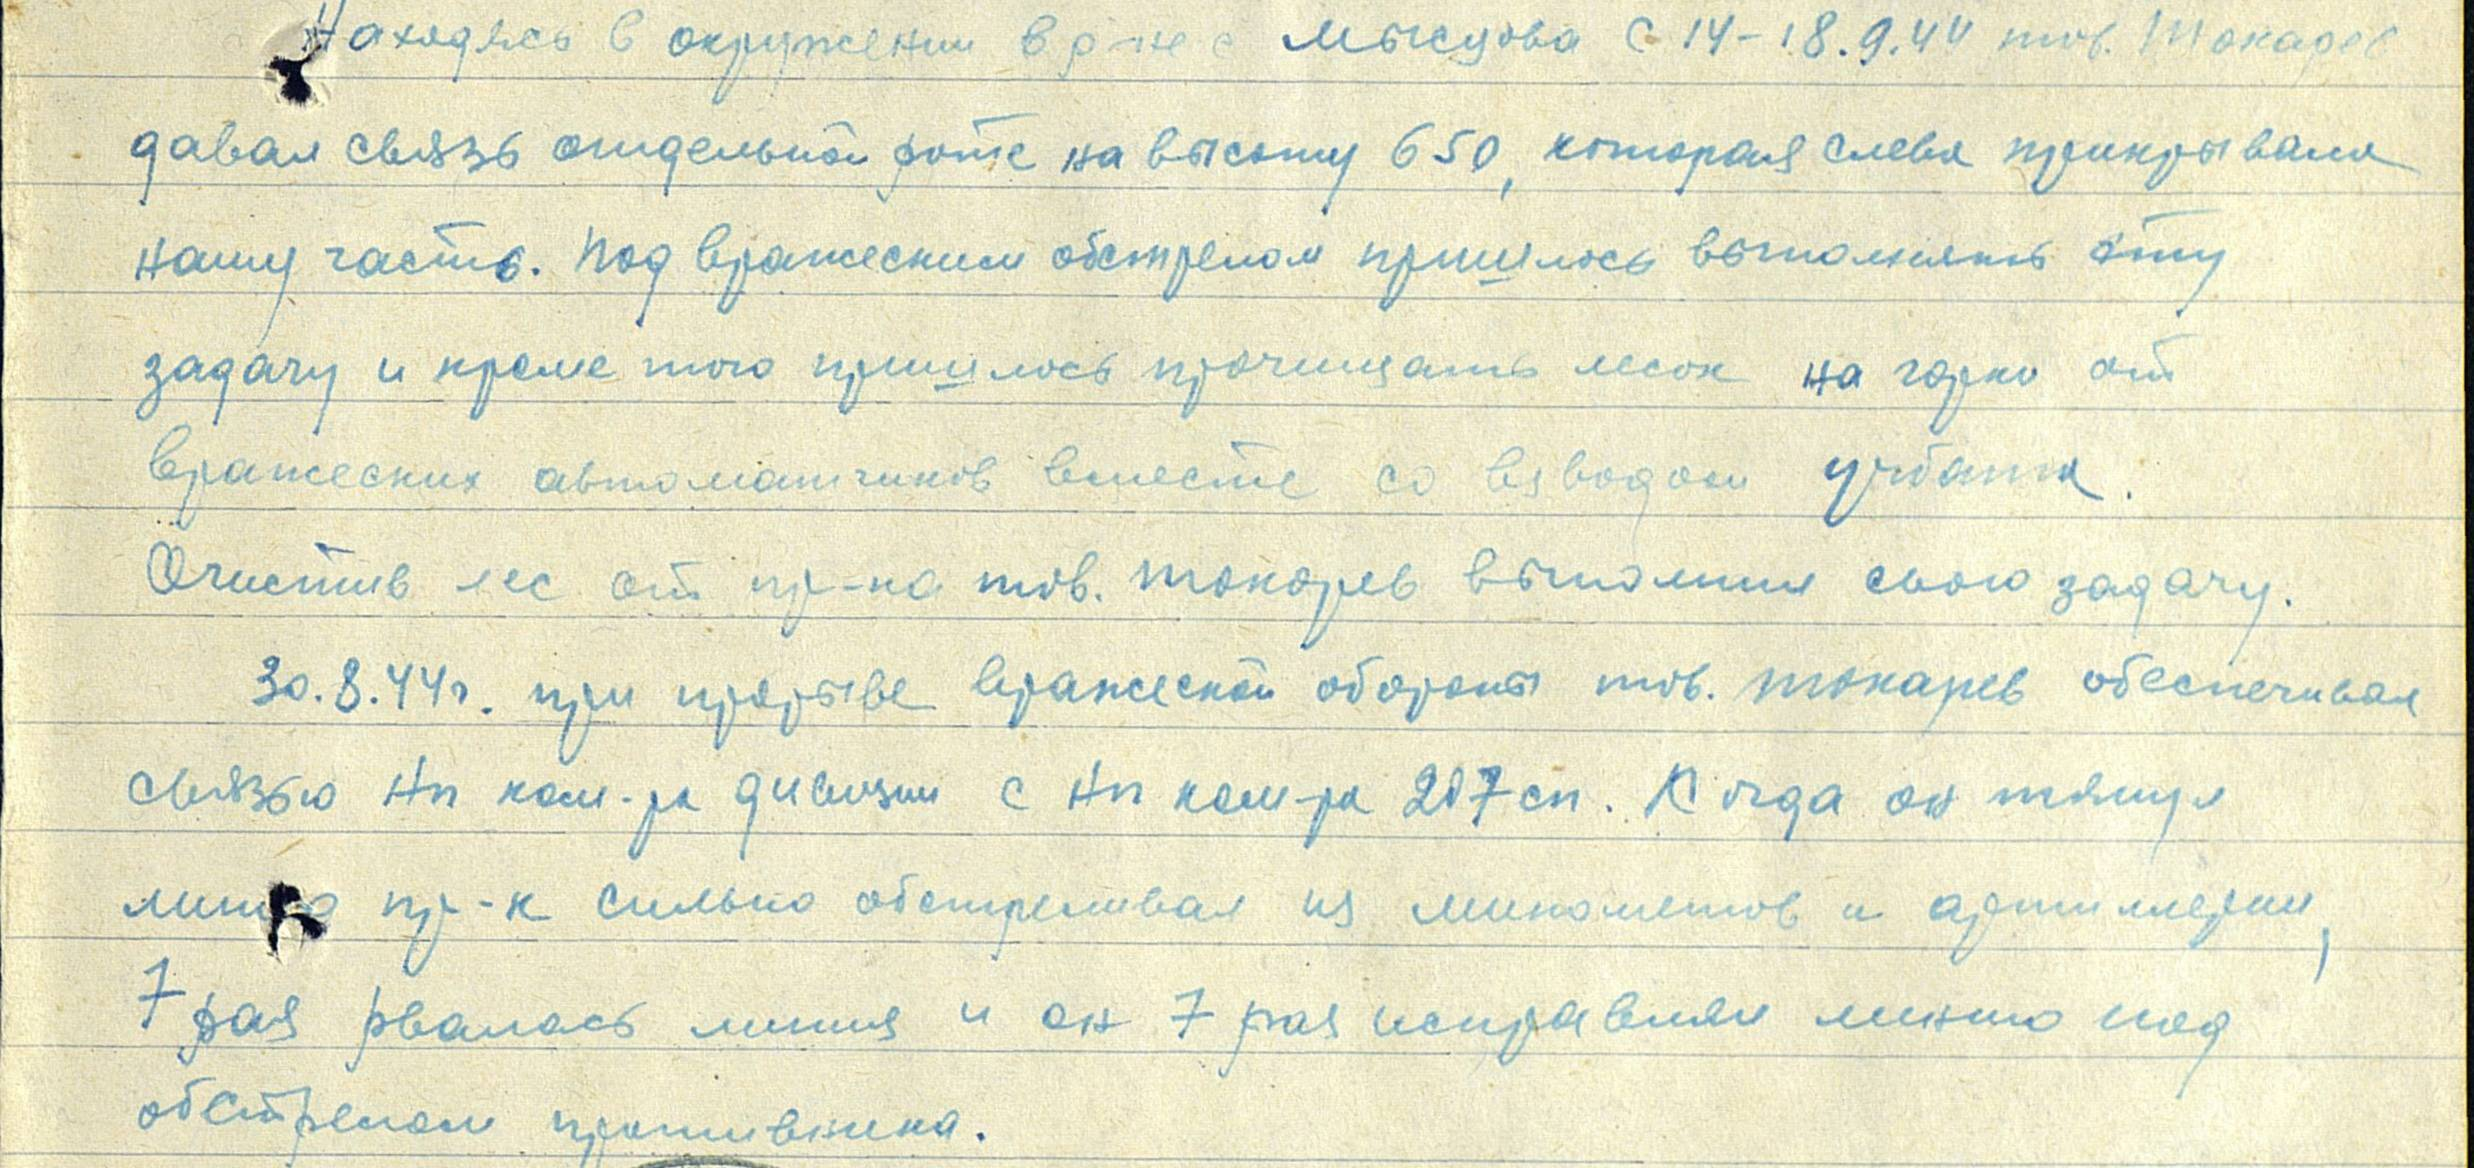 Находясь в окружении в р-не с Мысцова с 14-18.9.44 тов. Токарев
давал связь отдельной роте на высоту 650, которая слева прикрывала
нашу часть. Под вражеским обстрелом пришлось выполнять эту
задачу и кроме того пришлось прочищать лесок на горке от
вражеских автоматчиков вместе со взводом учбата.
Очистив лес от пр-ка тов. Токарев выполнил свою задачу.
30.8.44г. при прорыве вражеской обороны тов. Токарев обеспечивал
связью Нп ком-ра дивизии с Нп ком-ра 207 сп. Когда он тянул
линию пр-к сильно обстреливал из минометов и артиллерии,
7 раз рвалась линия и он 7 раз исправлял линию под
обстрелом противника.